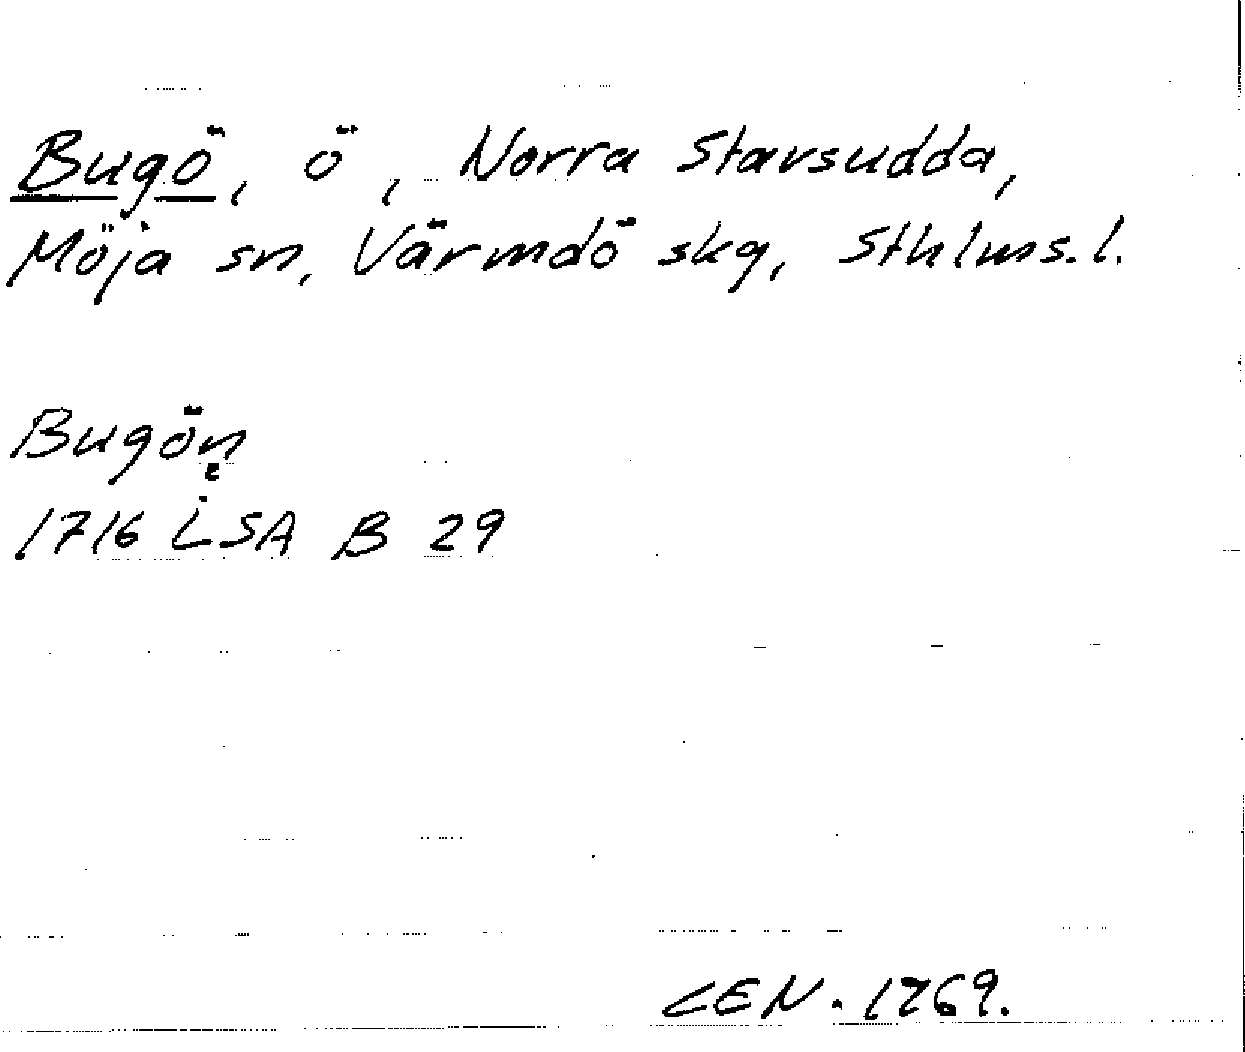 Bugö, ö, Norra Stavsudda,
Möja sn, Värmdö skg, Sthlms. l.
Bugön
1716 LSA B 29
CEN. 1769.